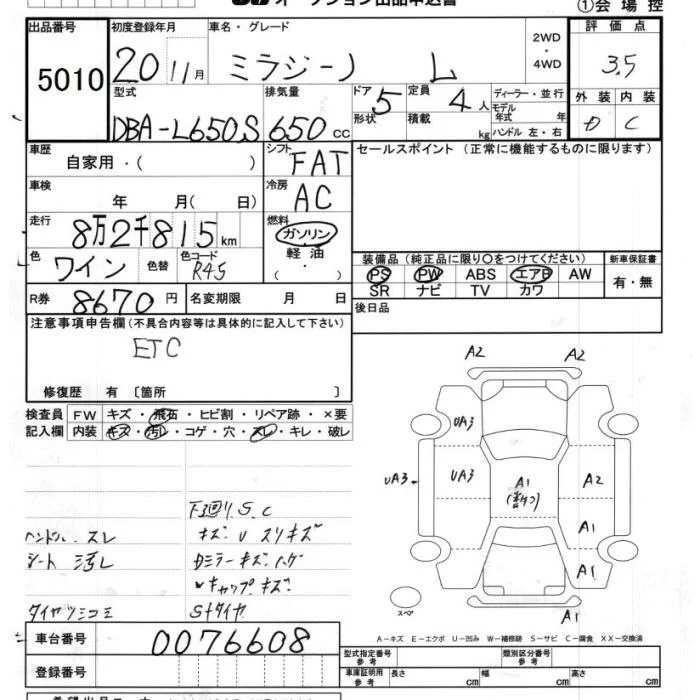 オークション出品申込書
①会場控
出品番号 初度登録年月 車名・グレード 2WD・4WD 評価点
5010 20 11月 ミラジーノ L 3.5
型式 排気量 ドア形状 定員 積載 ディーラー・並行 外装 内装
DBA-L650S 650cc 5 4人 kg モデル年式 年 ハンドル 左・右 D C
車歴 シフト セールスポイント (正常に機能するものに限ります)
自家用・( ) FAT
車検 冷房
年 月( 日) AC
走行 燃料
8万2千815km ガソリン
色 色替 色コード 軽油
ワイン R45 ( ・ )
装備品 (純正品に限り○をつけてください) 新車保証書
PS PW ABS エアB AW 有・無
SR ナビ TV カワ
R券 8670円 名変期限 月 日
後日品
注意事項申告欄(不具合内容等は具体的に記入して下さい)
ETC
修復歴 有 〔箇所 〕
検査員 FW キズ・飛石・ヒビ割・リペア跡・×要
記入欄 内装 キズ・汚レ・コゲ・穴・スレ・キレ・破レ
A2 A2
UA3
UA3 UA3 A1 A2
A1
A1
A1
スペア
下廻りS.C
ハンドル スレ キズ U スリキズ
シート 汚レ Dミラーキズ ハゲ
キャップキズ
Sタイヤ
A-キズ E-エクボ U-凹み W-補修跡 S-サビ C-腐食 XX-交換済
車台番号 0076608
登録番号
型式指定番号 参考 類別区分番号 参考
車庫証明用 参考 長さ cm 幅 cm 高さ cm